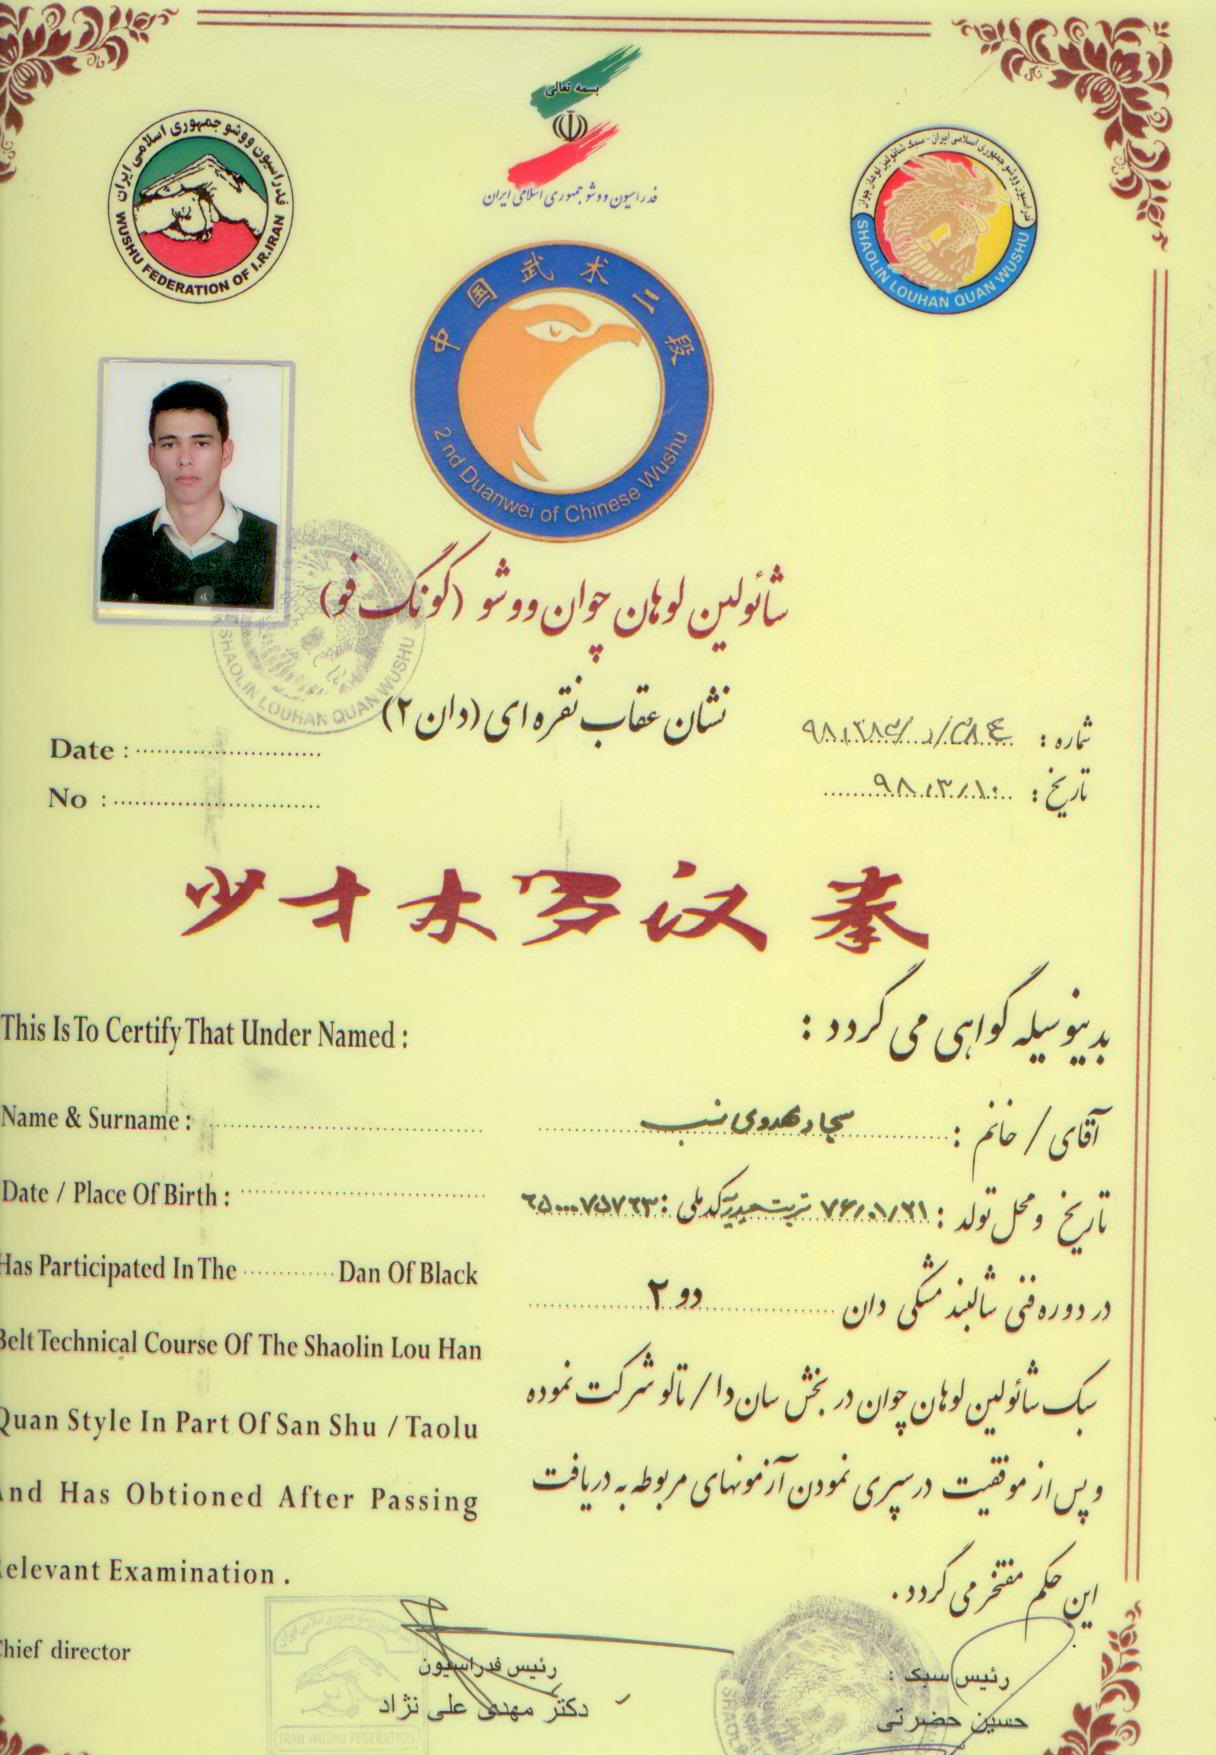 بسمه تعالی
فدراسیون ووشو جمهوری اسلامی ایران
فدراسیون ووشو جمهوری اسلامی ایران
WUSHU FEDERATION OF I.R.IRAN
فدراسیون ووشو جمهوری اسلامی ایران - سبک شائولین لوهان چوان
SHAOLIN LOUHAN QUAN WUSHU
中国武术二段
2 nd Duanwei of Chinese Wushu
شائولین لوهان چوان ووشو (کونگ فو)
SHAOLIN LOUHAN QUAN WUSHU
نشان عقاب نقره ای (دان ۲)
شماره :
Date :
تاریخ : ۹۸/۳/۱۰
No :
少林罗汉拳
This Is To Certify That Under Named :
بدینوسیله گواهی می گردد :
Name & Surname :
آقای / خانم : سجاد مهدوی نسب
Date / Place Of Birth :
تاریخ و محل تولد : ۷۶/۰۱/۲۱ تربت حیدریه کد ملی :
Has Participated In The ............ Dan Of Black
در دوره فنی شالبند مشکی دان دو ۲
Belt Technical Course Of The Shaolin Lou Han
سبک شائولین لوهان چوان در بخش سان دا / تالو شرکت نموده
Quan Style In Part Of San Shu / Taolu
و پس از موفقیت در سپری نمودن آزمونهای مربوطه به دریافت
And Has Obtioned After Passing
این حکم مفتخر می گردد .
Relevant Examination .
Chief director
رئیس فدراسیون
دکتر مهدی علی نژاد
رئیس سبک :
حسین حضرتی
IRAN WUSHU FEDERATION